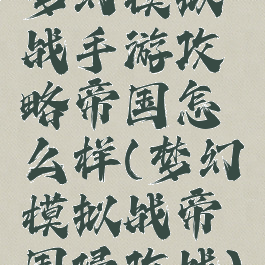 梦幻模拟
战手游攻
略帝国怎
么样(梦幻
模拟战帝
国攻战)